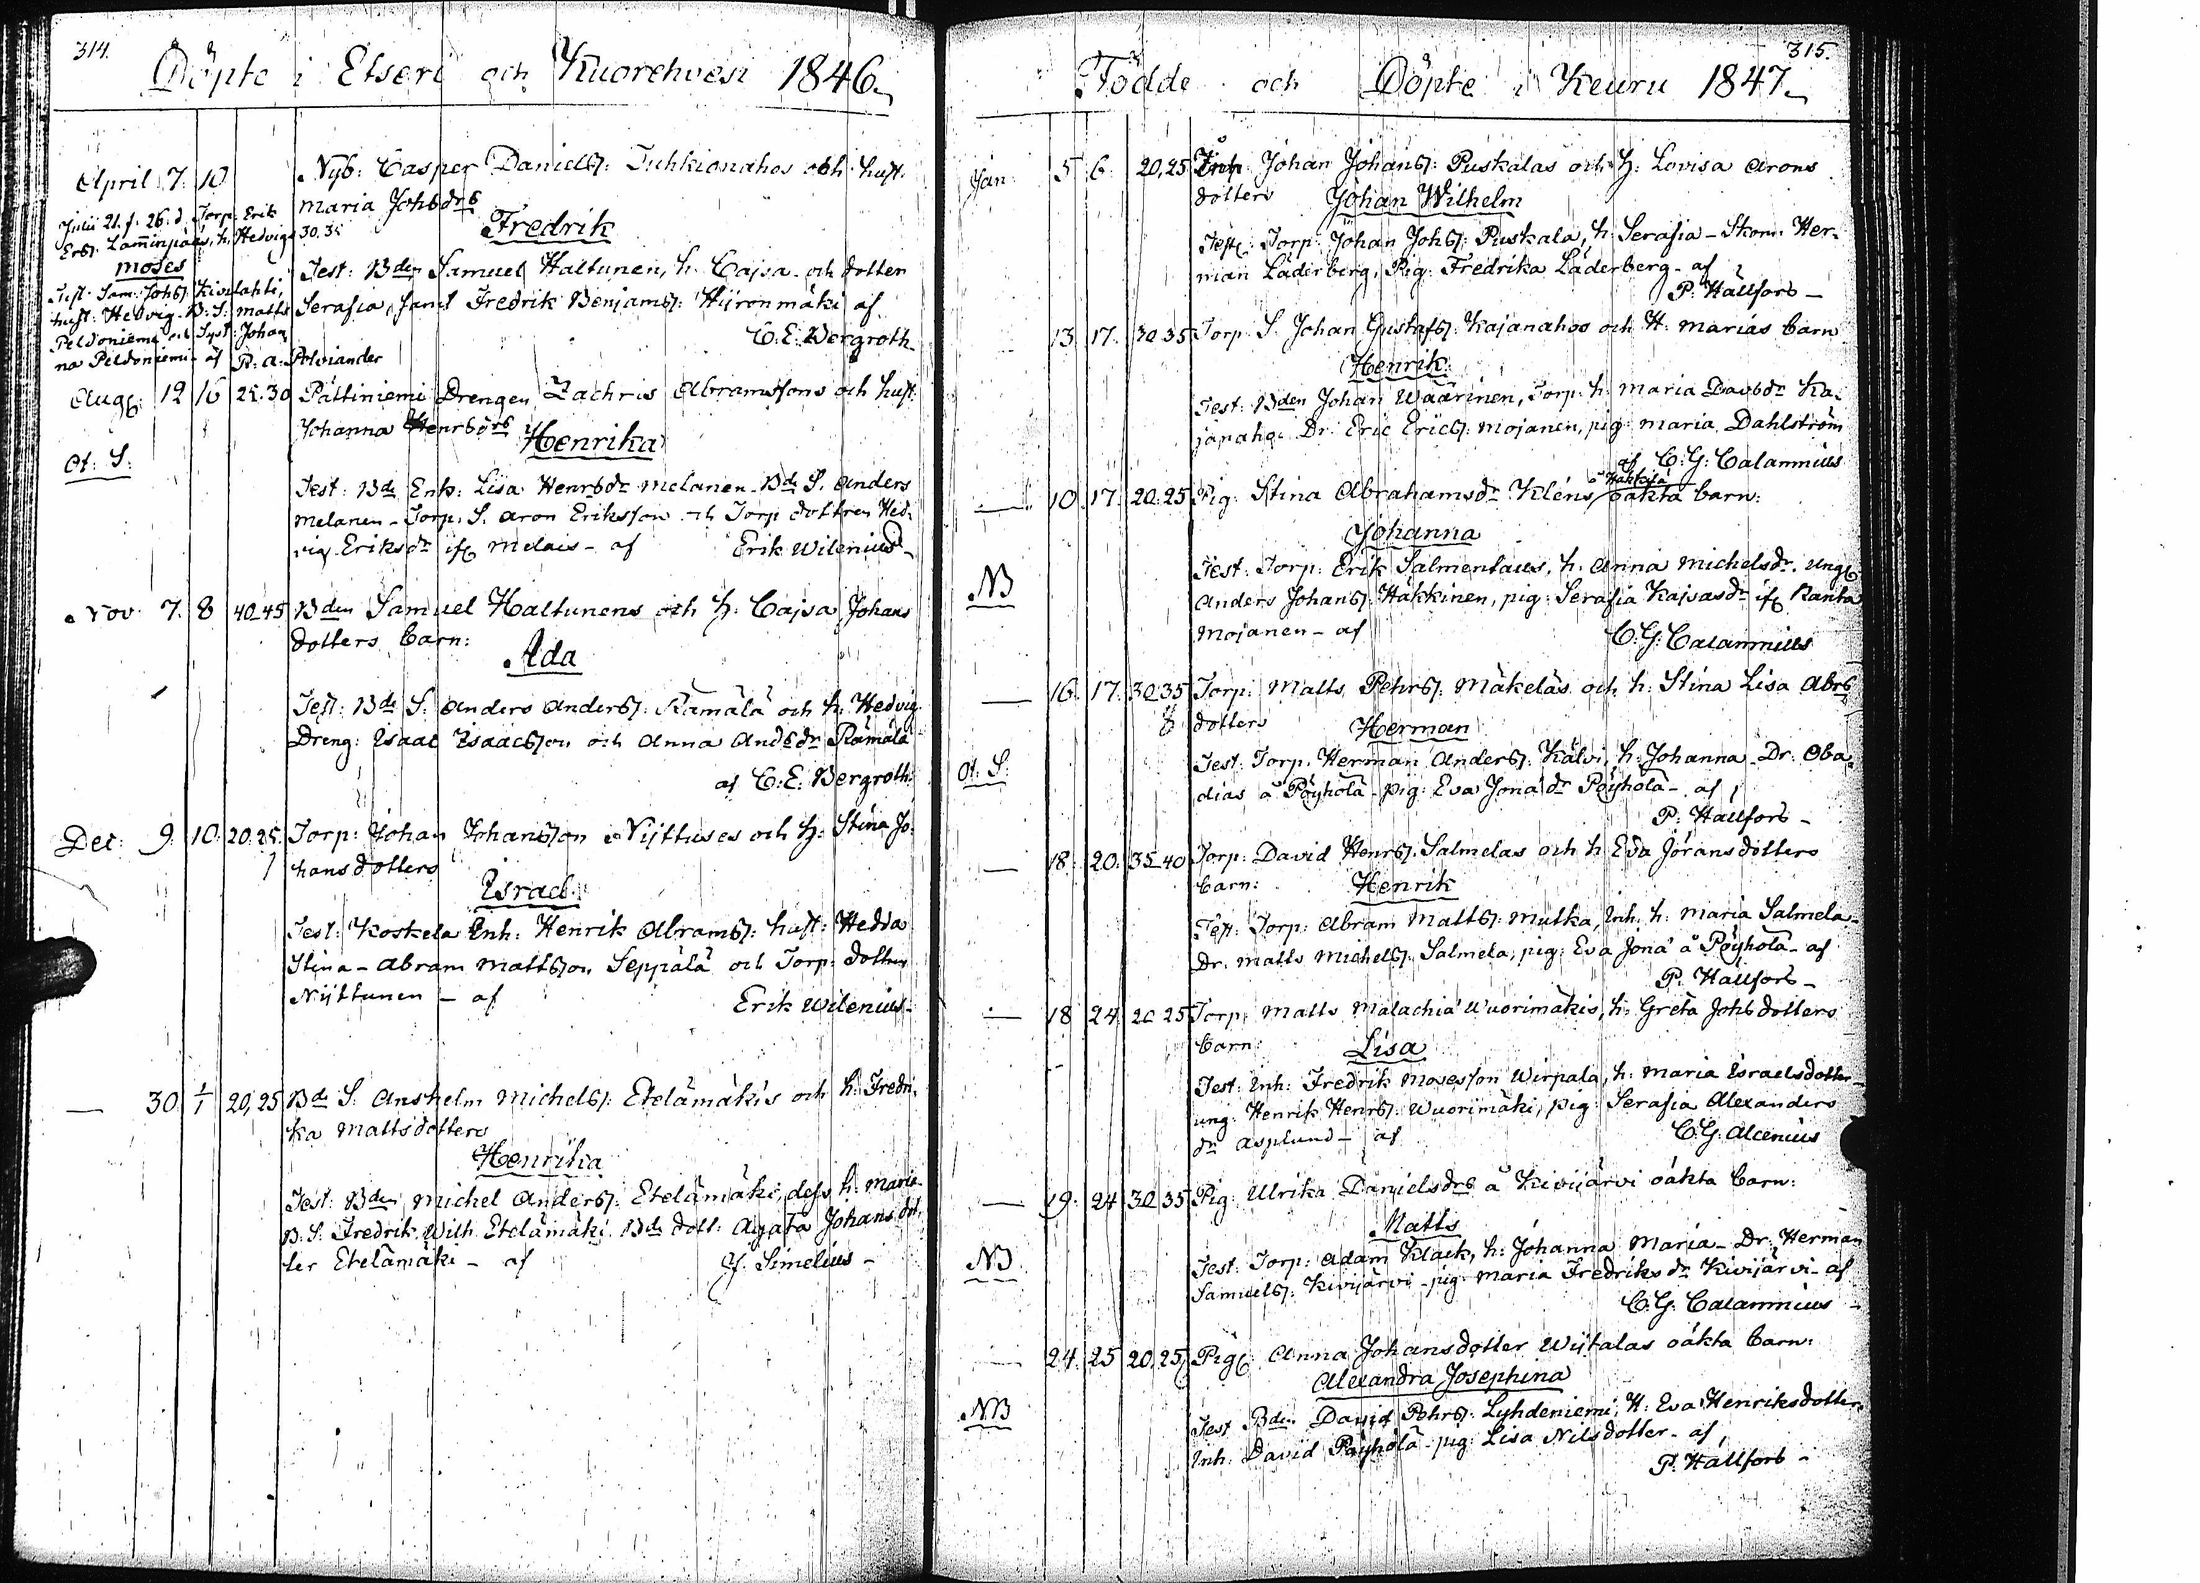 314.
Döpte i Etseri och Kuorehvesi 1846.
April 7. 10 Nyb: Casper Daniels: Tuhkionahos och hust.
Maria Johsdrs
Fredrik
Julii 21. f. 26. d. Torp: Erik
Ersz: Lamminpääs, h. Hedvigs 30.35
Moses
Test. Sam: Johsz: Kivilahti,
hust: Hedvig. B: S: Matts
Peldoniemi och Syst: Johan
na Peldoniemi af P. A. Polviander
Test: Bden Samuel Haltunen, h. Cajsa och dotter
Serafia, samt Fredrik Benjamsz: Hiironmäki af
C: E: Bergroth
Aug: 12 16 25.30 Pättiniemi Drengen Zachris Abramssons och hust:
Johanna Henrsdrs
Henrika
Ot: S:
Test: Bds Enk: Lisa Henrsdr Melanen Bds S. Anders
Melanen - Torp: S. Aron Eriksson och Torp dottren Hed-
vig Eriksdr ifr Melais - af Erik Wilenius
Nov 7. 8 40.45 Bden Samuel Haltunens och h: Cajsa Johans
dotters barn:
Ada
Test: Bds S: Anders Andersz: Rämälä och h. Hedvig
Dreng: Isaac Isaacsson och Anna Andsdr Rämälä
af C: E: Bergroth
Dec: 9. 10. 20.25. Torp: Johan Johansson Niittuses och h: Stina Jo-
hansdotters
Israel
Test: Koskela Inh: Henrik Abramsz: hust: Hedda
Stina - Abram Mattsson Seppälä och Torp: dottren
Niittunen - af Erik Wilenius
— 30 1/1 20,25 Bds S: Anshelm Michelsz: Etelämäkis och h: Fredri-
ka Mattsdotters
Henrika
Test: Bden Michel Andersz: Etelämäki, dess h. Maria
B. S: Fredrik Wilh: Etelämäki Bds dott: Agata Johansdot-
ter Etelämäki - af J. Simelius -
315.
Födde och Döpte i Keuru 1847.
Jan: 5 6. 20,25 Inh Johan Johansz: Puskalas och h: Lovisa Arons
dotters Johan Wilhelm
Test: Torp: Johan Johsz: Puskala, h: Serafia - Skom: Her-
man Läderberg, Pig: Fredrika Läderberg - af
P: Hallfors -
13. 17. 30.35 Torp. S. Johan Gustafsz: Kajanahos och H: Marias barn
Henrik
Test: Bden Johan Wäärinen, Torp: h: Maria Davsdr Ka-
janaho Dr: Eric Ericsz: Mojanen, pig: Maria Dahlström
af C: G: Calamnius
— 10. 17. 20.25 Pig: Stina Abrahamsdr Kléns å Häkkilä oäkta barn:
Johanna
NB
Test: Torp: Erik Salmentaus, h: Anna Michelsdr. ung:
Anders Johansz: Häkkinen, pig: Serafia Kajsasdr ifr Ranta
Mojanen - af C: G: Calamnius
— 16. 17. 30.35 Torp: Matts Pehrsz: Mäkeläs och h: Stina Lisa Abrs
dotters Herman
Ot: S:
Test: Torp: Herman Andersz: Kälvi, h: Johanna - Dr: Oba-
dias å Pöyhölä - pig: Eva Jonädr Pöyhölä - af
P: Hallfors -
— 18. 20. 35.40 Torp: David Henrsz: Salmelas och h: Eva Göransdotters
barn: Henrik
Test: Torp: Abram Mattsz: Mutka, Inh: h: Maria Salmela
Dr: Matts Michelsz: Salmela, pig: Eva Jonä å Pöyhölä - af
P: Hallfors -
— 18 24 20 25 Torp: Matts Malachiä Wuorimäkis, h: Greta Johsdotters
barn: Lisa
Test: Inh: Fredrik Mosesson Wirpala, h: Maria Israelsdotter
ung: Henrik Henrsz: Wuorimäki, pig: Serafia Alexanders
dr Asplund - af C: G: Alcenius
— 19. 24 30.35 Pig: Ulrika Danielsdrs å Kivijärvi oäkta barn:
Matts
NB
Test: Torp: Adam Klack, h: Johanna Maria - Dr: Herman
Samuelsz: Kivijärvi - pig: Maria Fredriksdr Kivijärvi - af
C: G: Calamnius -
— 24. 25 20,25 Pig: Anna Johansdotter Wiitalas oäkta barn:
Alexandra Josephina
NB
Test Bden David Pehrsz: Lyhdeniemi, H: Eva Henriksdotter,
Inh: David Pöyhölä - pig: Lisa Nilsdotter - af
P: Hallfors -